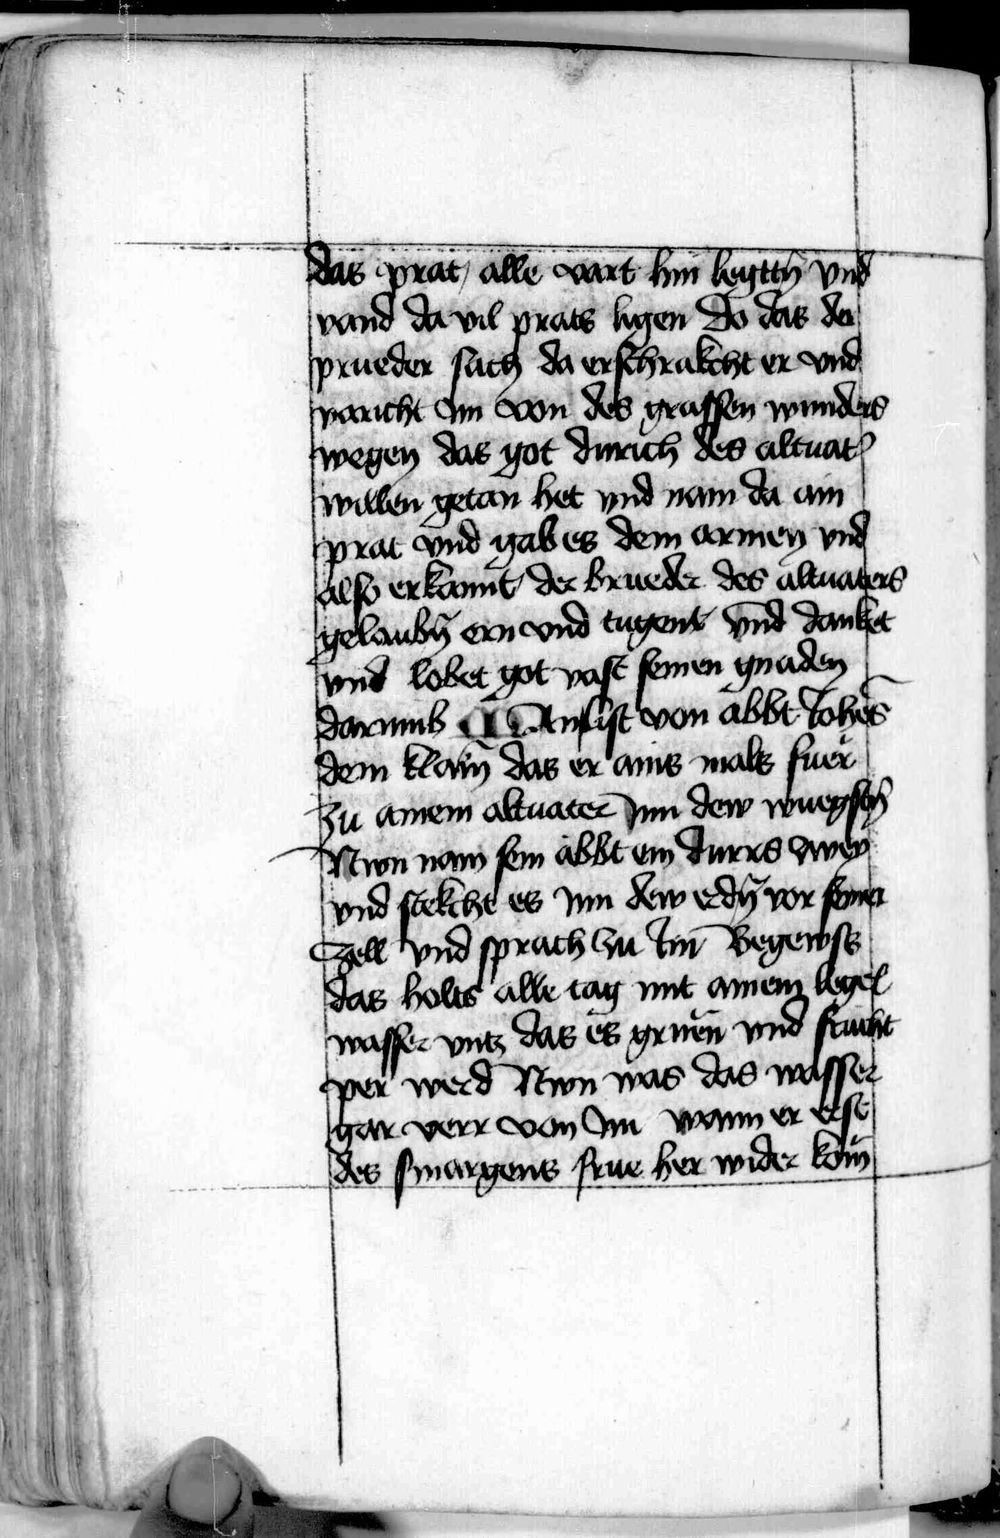 das prat alle vart hin legttn̄ vnd
vand da vil prats ligen Do das der
prueder sach da erschrakcht er vnd
varicht im von des grassen wunders
wegen das got durich des altuat̾
willen getan het vnd nam da ain
prat vnd gab es dem armen vnd
also erkannt der brueder des altuaters
gelaubn̄ ern vnd tugent vnd danket
vnd lobet got vast seinen gnaden
darumb Man list von abbt Johēs
dem klain̄ das er ains mals fuer
zu ainem altuater inn dew wuegstn̄
Nwn nam sein abbt ein durrs zwey
vnd stekcht es inn dew erdn̄ vor seiner
zell vnd sprach zu im Begewss
das holts alle tag mit ainem legel
wasser vntz das es gruen vnd frucht
per werd Nwn was das wasser
gar verr von im wann er erst
des smargens frue her wider kom̄